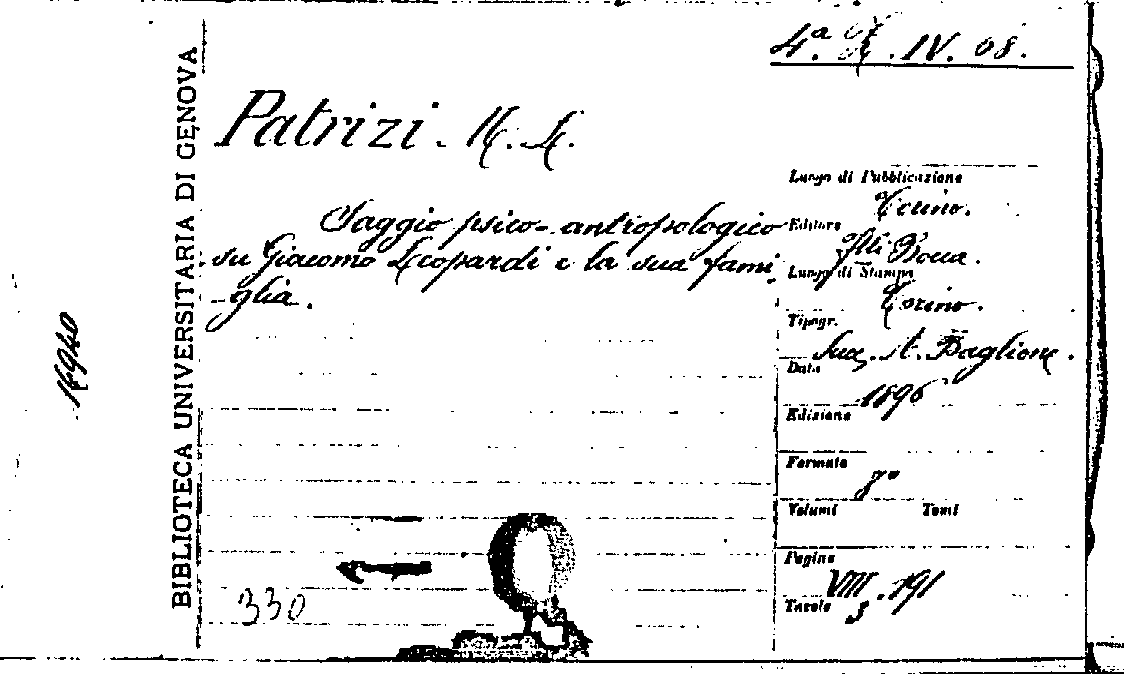 4.a X. IV. 08.
Patrizi. M. L.
Saggio psico-antropologico
su Giacomo Leopardi e la sua fami
glia.
Luogo di Pubblicazione
Torino.
Editore
Flli Bocca.
Luogo di Stampa
Torino.
Tipogr.
Succ. A. Baglione.
Data
1896
Edizione
Formato
8°
Volumi Tomi
Pagine
VIII. 191
Tavole
3
BIBLIOTECA UNIVERSITARIA DI GENOVA
16940
330